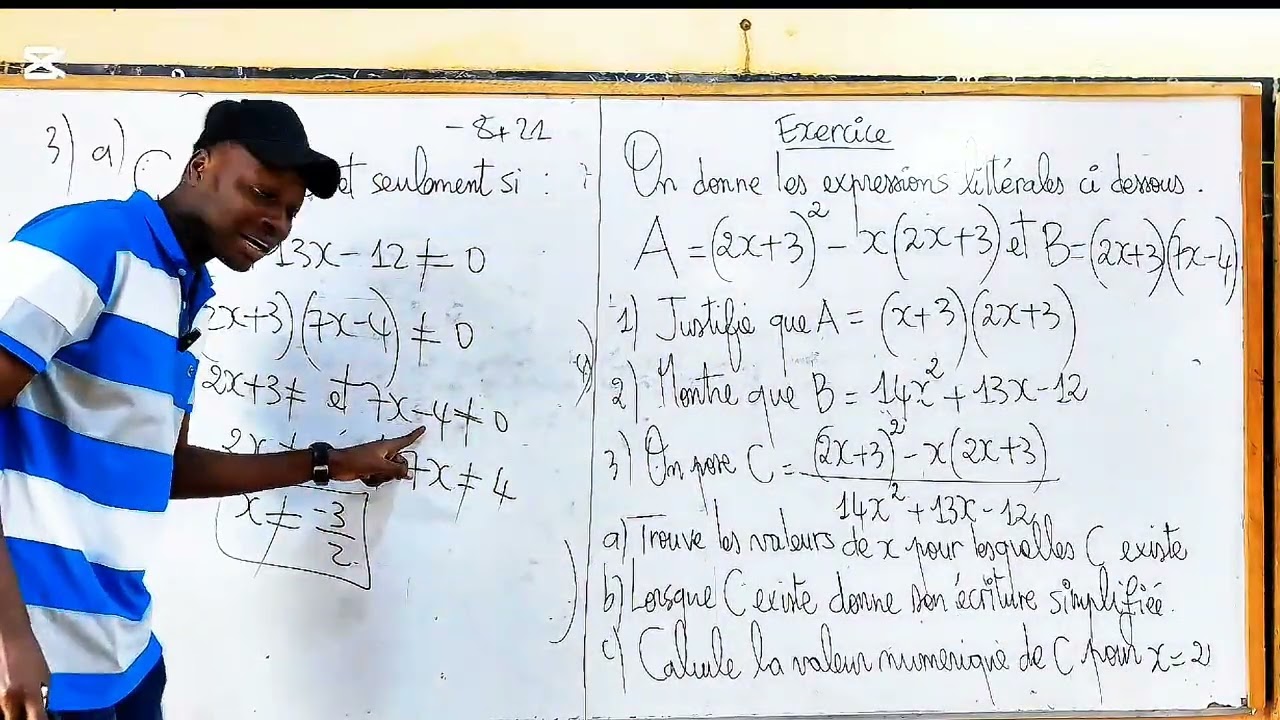 3) a) C et seulement si :
-8+21
13x-12≠0
2x+3)(7x-4)≠0
2x+3≠ et 7x-4≠0
2x≠ 7x≠4
x≠-3/2
Exercice
On donne les expressions littérales ci dessous.
A=(2x+3)²-x(2x+3) et B=(2x+3)(7x-4)
1) Justifie que A=(x+3)(2x+3)
2) Montre que B=14x²+13x-12
3) On pose C=(2x+3)²-x(2x+3)
14x²+13x-12
a) Trouve les valeurs de x pour lesquelles C existe
b) Lorsque C existe donne son écriture simplifiée.
c) Calcule la valeur numérique de C pour x=2